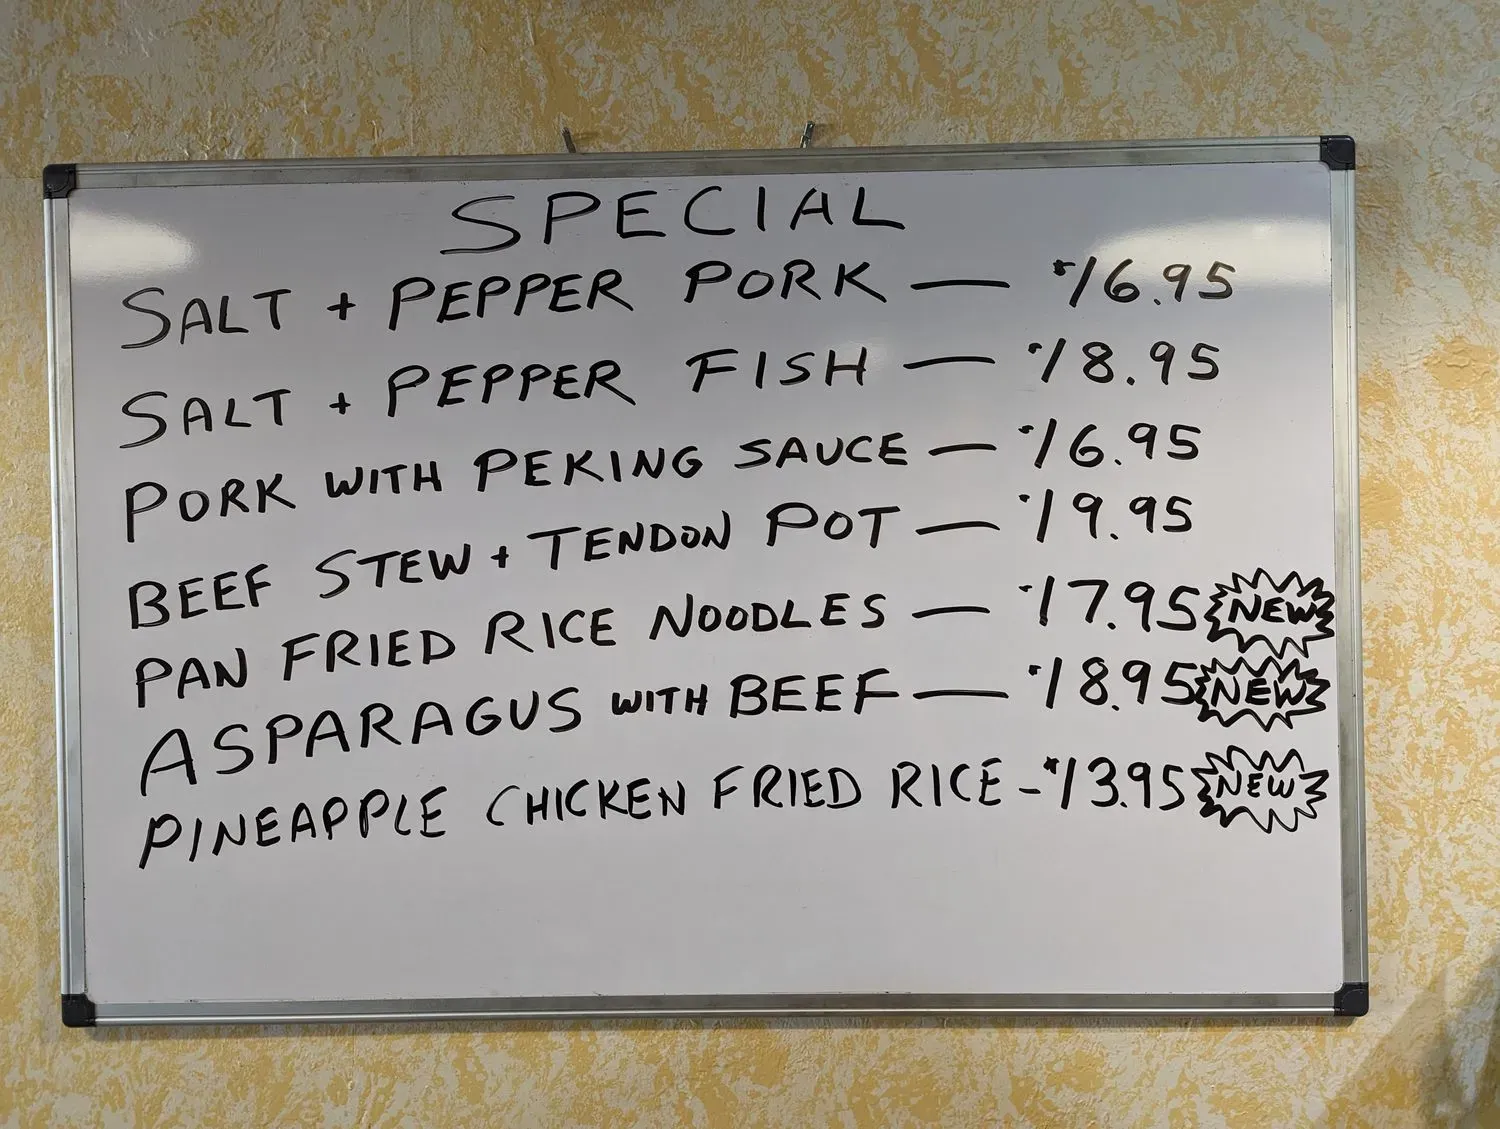 SPECIAL
SALT + PEPPER PORK — $16.95
SALT + PEPPER FISH — $18.95
PORK WITH PEKING SAUCE — $16.95
BEEF STEW + TENDON POT — $19.95
PAN FRIED RICE NOODLES — $17.95 NEW
ASPARAGUS WITH BEEF — $18.95 NEW
PINEAPPLE CHICKEN FRIED RICE - $13.95 NEW